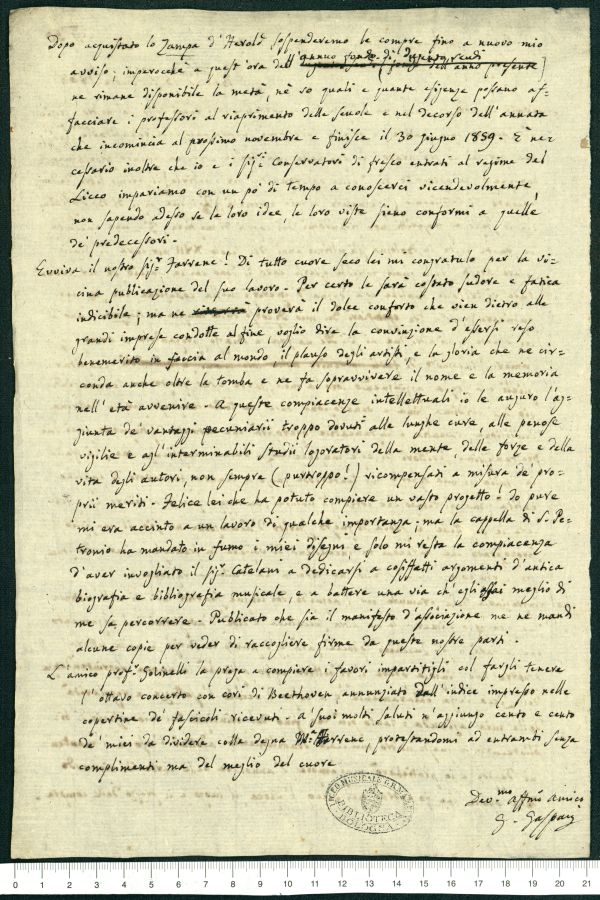 Dopo acquistato lo Zampa d'Herold sospenderemo le compre fino a nuovo mio
annuo fondo di duecento scudi
avviso; imperocchè a quest'ora dell'
ne rimane disponibile la metà, nè so quali e quante esigenze possano af=
facciare i professori al riaprimento delle scuole e nel decorso dell'annata
che incomincia al prossimo novembre e finisce il 30 giugno 1859. È ne=
cessario inoltre che io e i sig.ri Conservatori di fresco entrati al regime del
Liceo impariamo con un po' di tempo a conoscerci vicendevolmente,
non sapendo adesso se le loro idee, le loro viste sieno conformi a quelle
de' predecessori.
Evviva il nostro sig.r Farrenc! Di tutto cuore seco lei mi congratulo per la vi=
cina publicazione del suo lavoro. Per certo le sarà costato sudore e fatica
indicibile; ma ne proverà il dolce conforto che vien dietro alle
grandi imprese condotte al fine, voglio dire la convinzione d'essersi reso
benemerito in faccia al mondo, il plauso degli artisti, e la gloria che ne cir=
conda anche oltre la tomba e ne fa sopravvivere il nome e la memoria
nell'età avvenire. A queste compiacenze intellettuali io le auguro l'ag=
giunta de' vantaggi pecuniarii troppo dovuti alle lunghe cure, alle penose
vigilie e agl'interminabili studii logoratori della mente, delle forze e della
vita degli autori, non sempre (purtroppo!) ricompensati a misura de' pro=
prii meriti. Felice lei che ha potuto compiere un vasto progetto! Io pure
mi era accinto a un lavoro di qualche importanza; ma la cappella di S. Pe=
tronio ha mandato in fumo i miei disegni e solo mi resta la compiacenza
d'aver invogliato il sig.r Catelani a dedicarsi a cosiffatti argomenti d'antica
biografia e bibliografia musicale, e a battere una via ch'egli assai meglio di
me sa percorrere. Publicato che sia il manifesto d'associazione me ne mandi
alcune copie per veder di raccogliere firme da queste nostre parti.
L'amico prof.r Golinelli la prega a compiere i favori impartitigli col fargli tenere
l'ottavo concerto con cori di Beethoven annunziato dall'indice impresso nelle
copertine de' fascicoli ricevuti. A' suoi molti saluti n'aggiungo cento e cento
de' miei da dividere colla degna M.e Farrenc, protestandomi ad entrambi senza
complimenti ma del meglio del cuore
Dev.mo affmo amico
G. Gaspari
LICEO MUSICALE
BIBLIOTECA
BOLOGNA
0 1 2 3 4 5 6 7 8 9 10 11 12 13 14 15 16 17 18 19 20 21